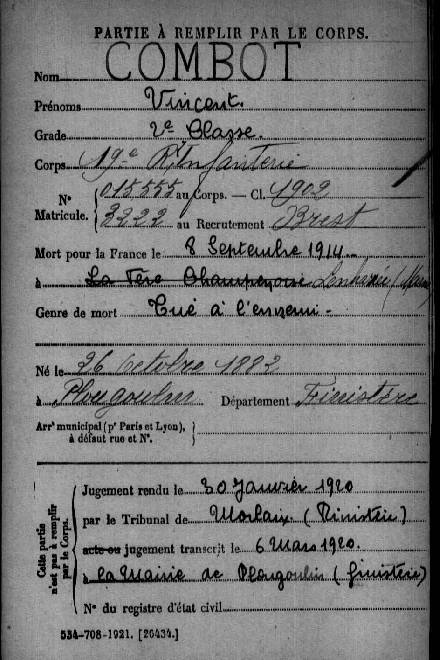 PARTIE À REMPLIR PAR LE CORPS.
Nom COMBOT
Prénoms Vincent.
Grade 2e Classe.
Corps 19e R. Infanterie
N° Matricule. { 015555 au Corps. — Cl. 1902
3222 au Recrutement Brest
Mort pour la France le 8 Septembre 1914
à La Fère Champenoise Lenharrée (Marne)
Genre de mort Tué à l'ennemi -
Né le 26 Octobre 1882
à Plougoulm Département Finistère
Arrt municipal (pr Paris et Lyon), à défaut rue et N°. }
Cette partie n'est pas à remplir par le Corps.
Jugement rendu le 30 Janvier 1920
par le Tribunal de Morlaix (Finistère)
acte ou jugement transcrit le 6 Mars 1920.
à la Mairie de Plougoulm (Finistère)
N° du registre d'état civil
534-708-1921. [26434.]